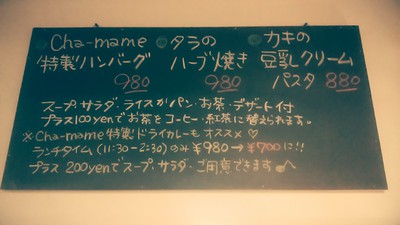 Cha-mame タラの カキの
特製ハンバーグ ハーブ焼き 豆乳クリーム
980 980 パスタ 880
スープ・サラダ・ライスかパン・お茶・デザート付
プラス100yenでお茶をコーヒー・紅茶に替えられます。
※Cha-mame特製ドライカレーもオススメ♡
ランチタイム(11:30-2:30)のみ¥980→¥700に!!
プラス200yenでスープ・サラダ・ご用意できます。